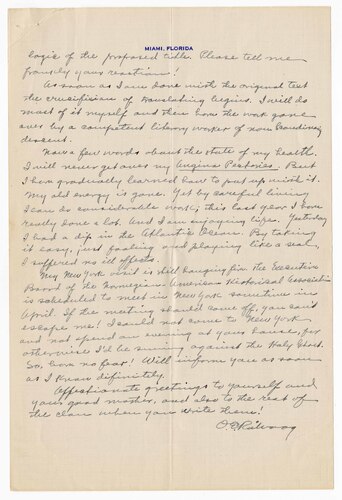 MIAMI, FLORIDA
logic of the proposed title. Please tell me
frankly your reaction!
As soon as I am done with the original text
the crucifixion of translating begins. I will do
most of it myself and then have the work gone
over by a competent literary worker of non Scandinav.
descent.
Now a few words about the state of my health.
I will never get over my Angina Pectories. But
I have gradually learned how to put up with it.
My old energy is gone. Yet by careful living
I can do considerable work; this last year I have
really done a lot. And I am enjoying life. Yesterday
I had a dip in the Atlantic Ocean. By taking
it easy, just fooling and playing like a seal,
I suffered no ill effects.
My New York visit is still hanging fire. The Executive
Board of the Norwegian-American Historical Association
is scheduled to meet in New York sometime in
April. If the meeting should come off, you can't
escape me! I could not come to New York
and not spend an evening at your house, for
otherwise I'd be sinning against the Holy Ghost.
So, have no fear! Will inform you as soon
as I know definitely.
Affectionate greetings to yourself and
your good mother, and also to the rest of
the clan when you write them!
O. E. Rölvaag